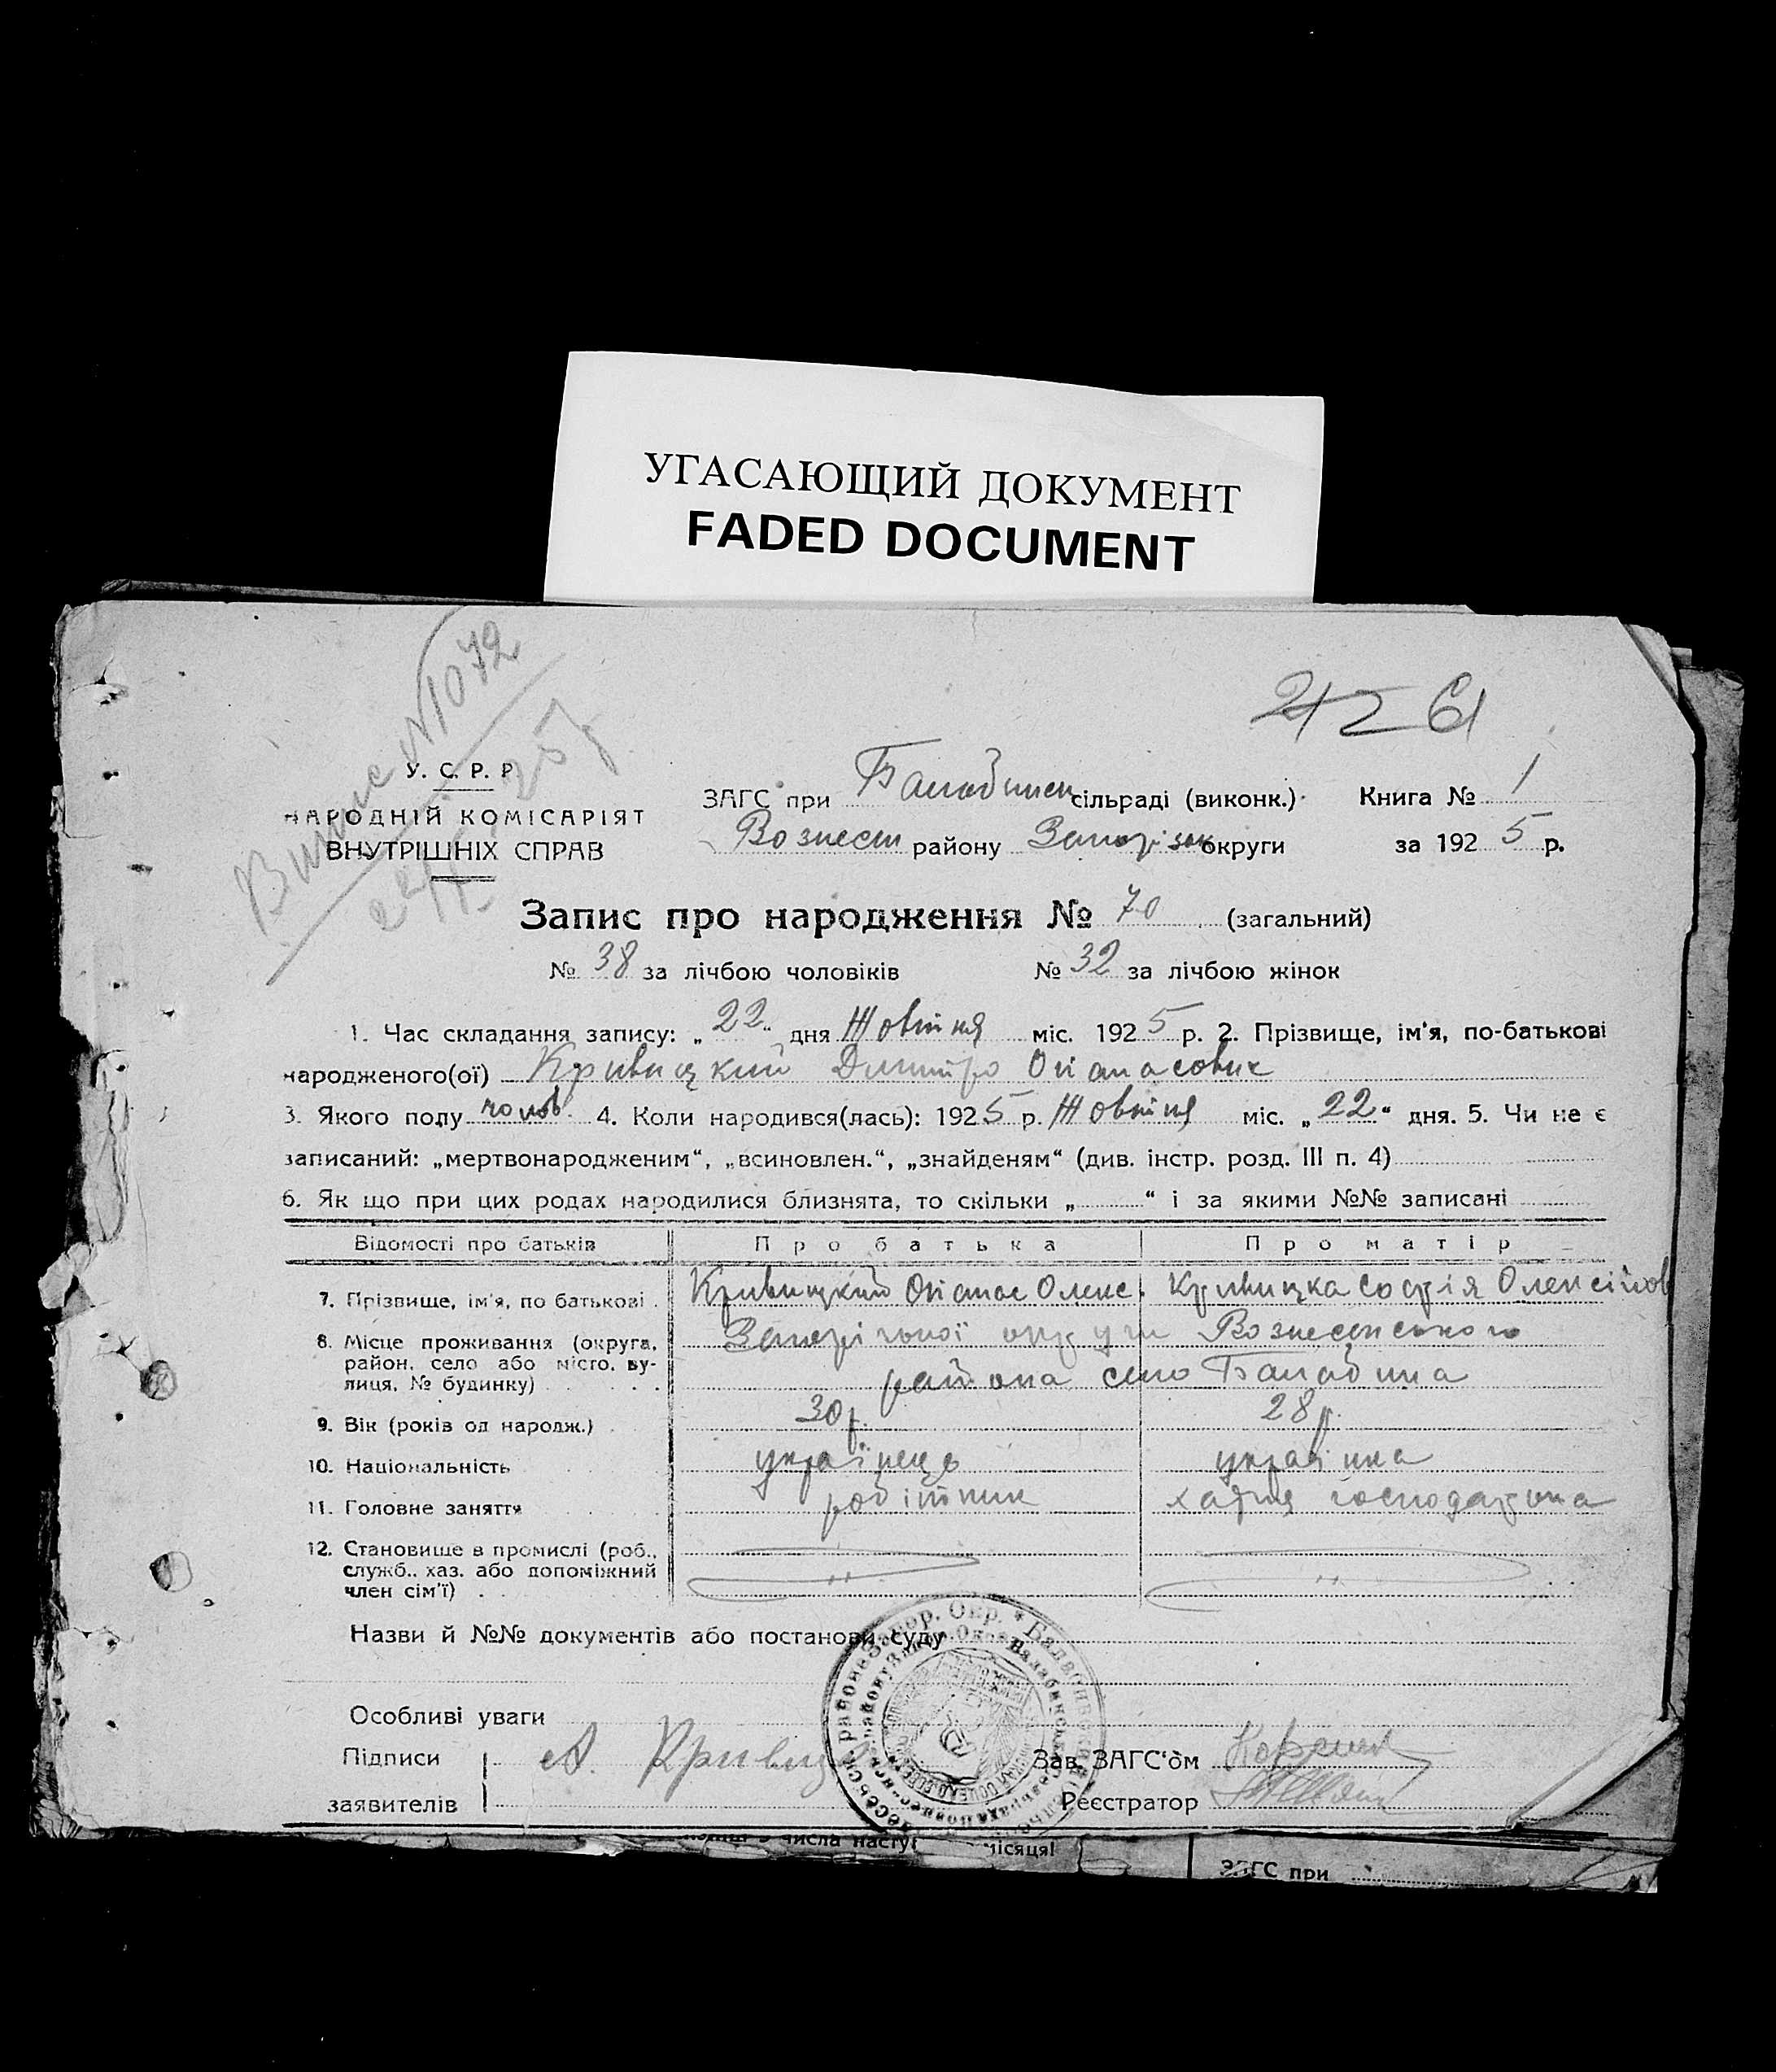 УГАСАЮЩИЙ ДОКУМЕНТ
FADED DOCUMENT
1072
61
У. С. Р. Р.
НАРОДНІЙ КОМІСАРІЯТ
ВНУТРІШНІХ СПРАВ
ЗАГС при Балабинск сільраді (виконк.) Книга № 1
Вознесен району Запорізьк округи за 1925 р.
Запис про народження № 70 (загальний)
№ 38 за лічбою чоловіків № 32 за лічбою жінок
1. Час складання запису: „22“ дня Жовтня міс. 1925 р. 2. Прізвище, ім'я, по-батькові
народженого(ої) Кривицкий Дмитро Опанасович
3. Якого полу чолов. 4. Коли народився(лась): 1925 р. Жовтня міс. „22“ дня. 5. Чи не є
записаний: „мертвонародженим“, „всиновлен.“, „знайденям“ (див. інстр. розд. III п. 4)
6. Як що при цих родах народилися близнята, то скільки „ “ і за якими №№ записані
Відомості про батьків Про батька Про матір
7. Прізвище, ім'я, по батькові Кривицкий Опанас Олекс. Кривицка Софія Олексіїов
8. Місце проживання (округа, район, село або місто, вулиця, № будинку) Запорізької округи Вознесенського
района село Балабина
9. Вік (років од народж.) 30 р. 28 р.
10. Національність українець українка
11. Головне заняття робітник хатня господарка
12. Становище в промислі (роб., служб., хаз. або допоміжний член сім'ї) " "
Назви й №№ документів або постанови суду
Особливі уваги
Підписи А. Кривиц Зав. ЗАГС'ом
заявителів Реєстратор
числа насту місяця!
ЗАГС при